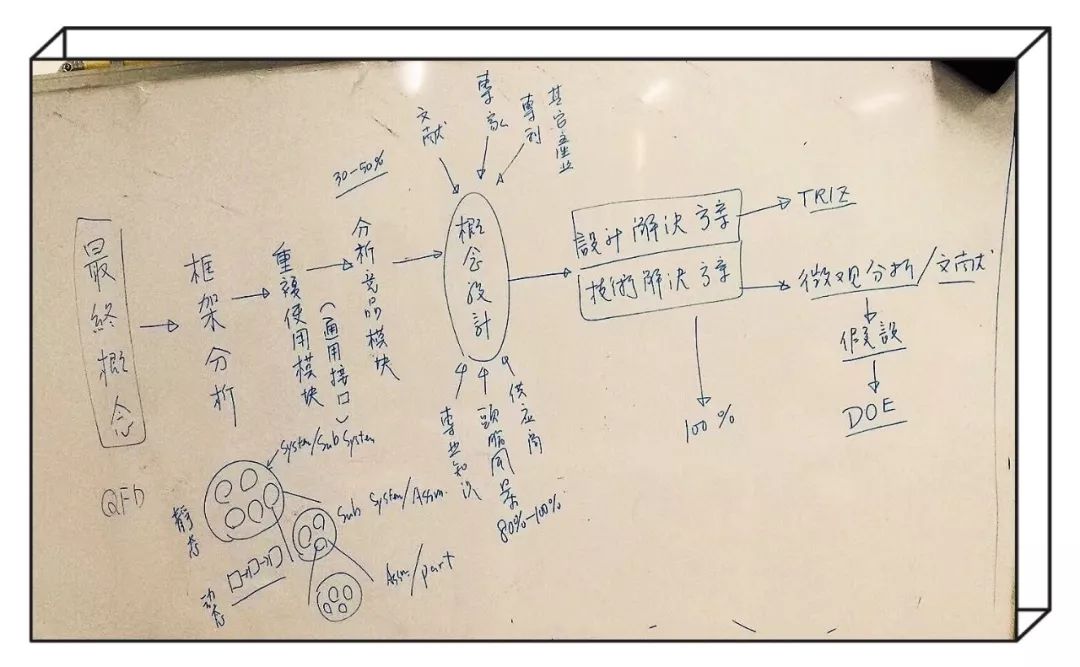 最終概念
QFD
框架分析
重複使用模块
(通用接口)
30-50%
分析竞品模块
文献
專家
專利
其它產业
概念設計
專业知识
頭腦風暴
供应商
80%-100%
設計解決方案
技術解決方案
TRIZ
微观分析/文献
假設
DOE
100%
System/Sub System
Sub System/Assm.
Assm/part
静态
动态